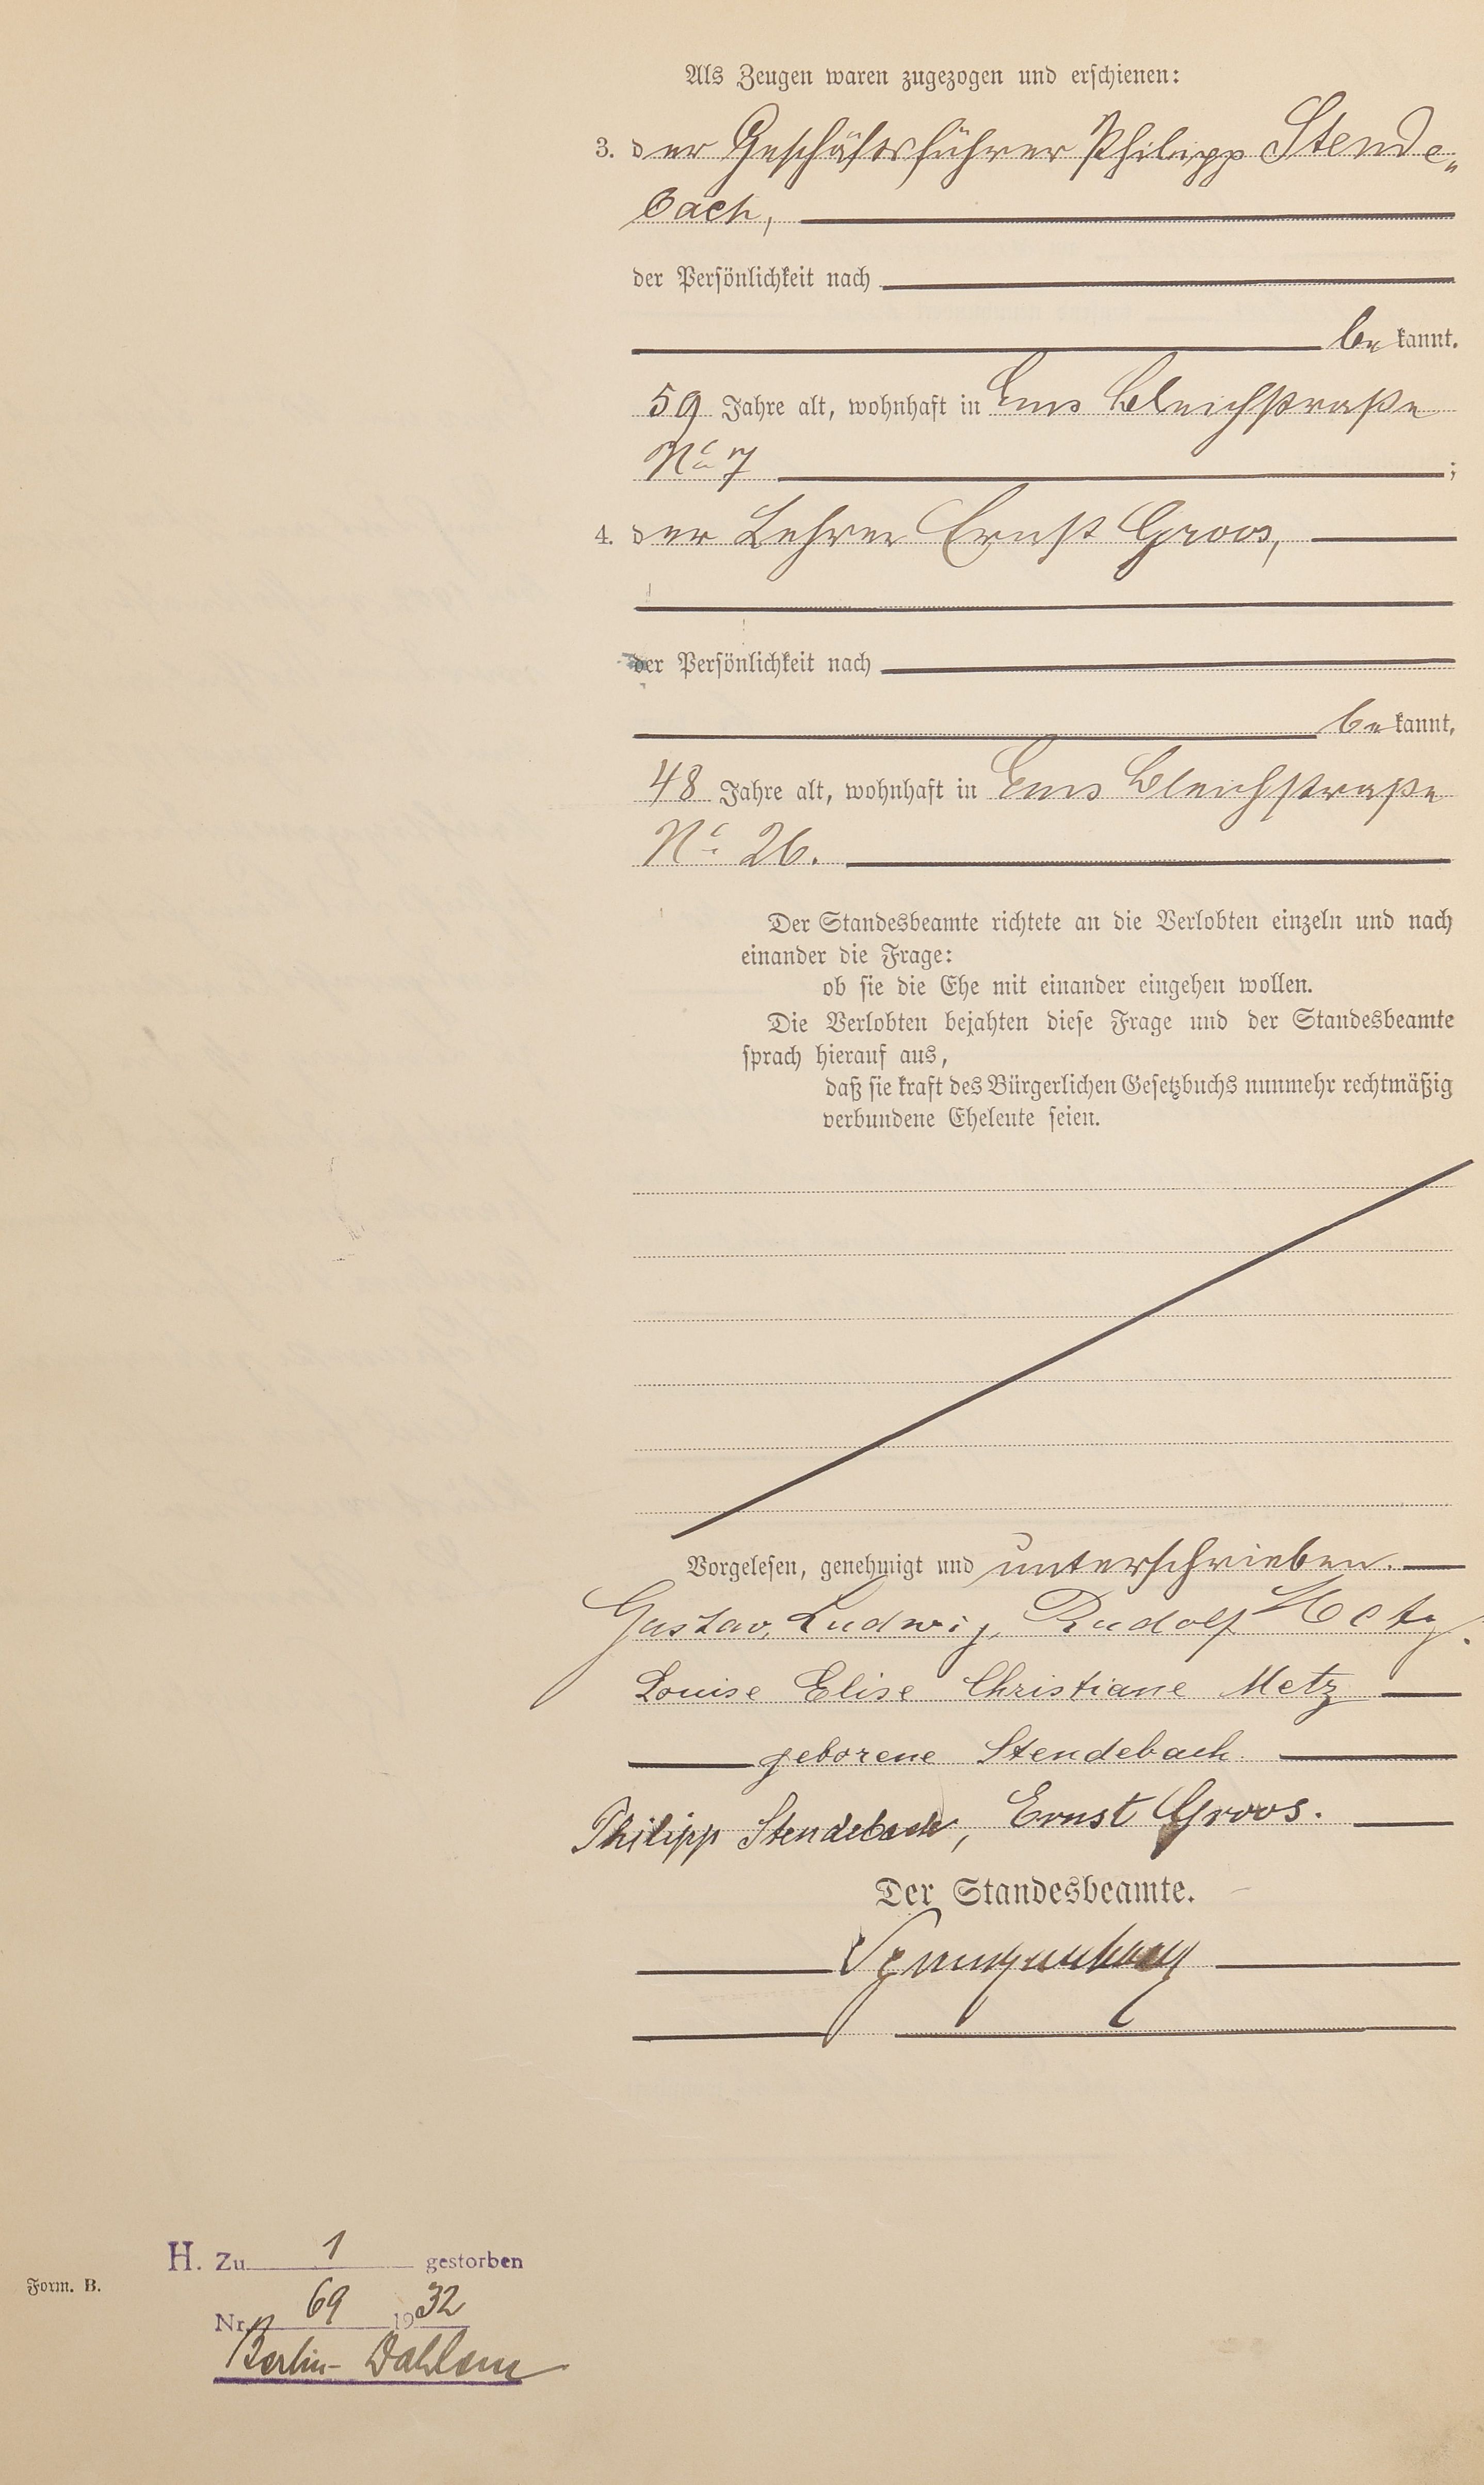 Als Zeugen waren zugezogen und erschienen:
3. der Geschäftsführer Philipp Stende„
bach,
der Persönlichkeit nach
bekannt.
59 Jahre alt, wohnhaft in Ems Bleichstraße
No 7 ;
4. der Lehrer Ernst Groos,
der Persönlichkeit nach
bekannt,
48 Jahre alt, wohnhaft in Ems Bleichstraße
No 26.
Der Standesbeamte richtete an die Verlobten einzeln und nach
einander die Frage:
ob sie die Ehe mit einander eingehen wollen.
Die Verlobten bejahten diese Frage und der Standesbeamte
sprach hierauf aus,
daß sie kraft des Bürgerlichen Gesetzbuchs nunmehr rechtmäßig
verbundene Eheleute seien.
Vorgelesen, genehmigt und unterschrieben.
Gustav Ludwig Rudolf Metz.
Louise Elise Christiane Metz
geborene Stendebach.
Philipp Stendebach, Ernst Groos.
Der Standesbeamte.
H. Zu 1 gestorben
Form. B.
Nr. 69 1932
Berlin-Dahlem